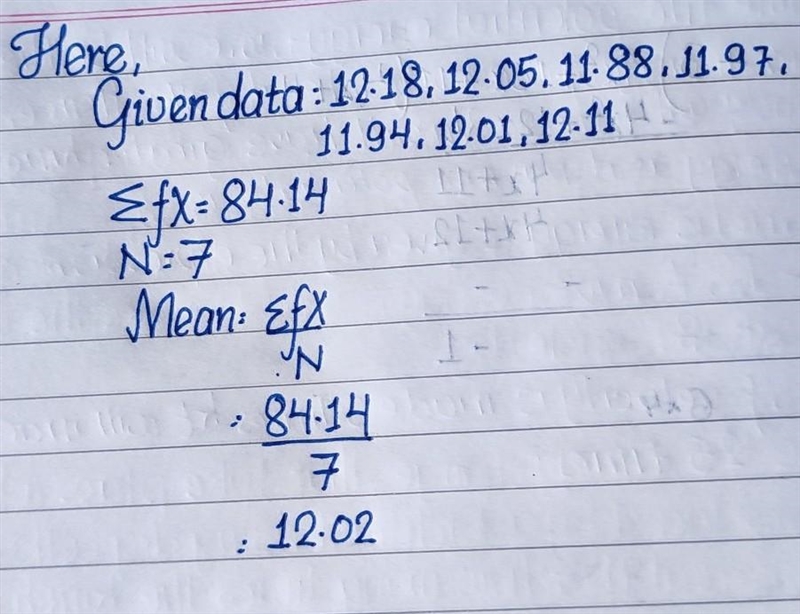 Here,
Given data: 12.18, 12.05, 11.88, 11.97,
11.94, 12.01, 12.11
Σfx = 84.14
N = 7
Mean = Σfx
N
= 84.14
7
= 12.02